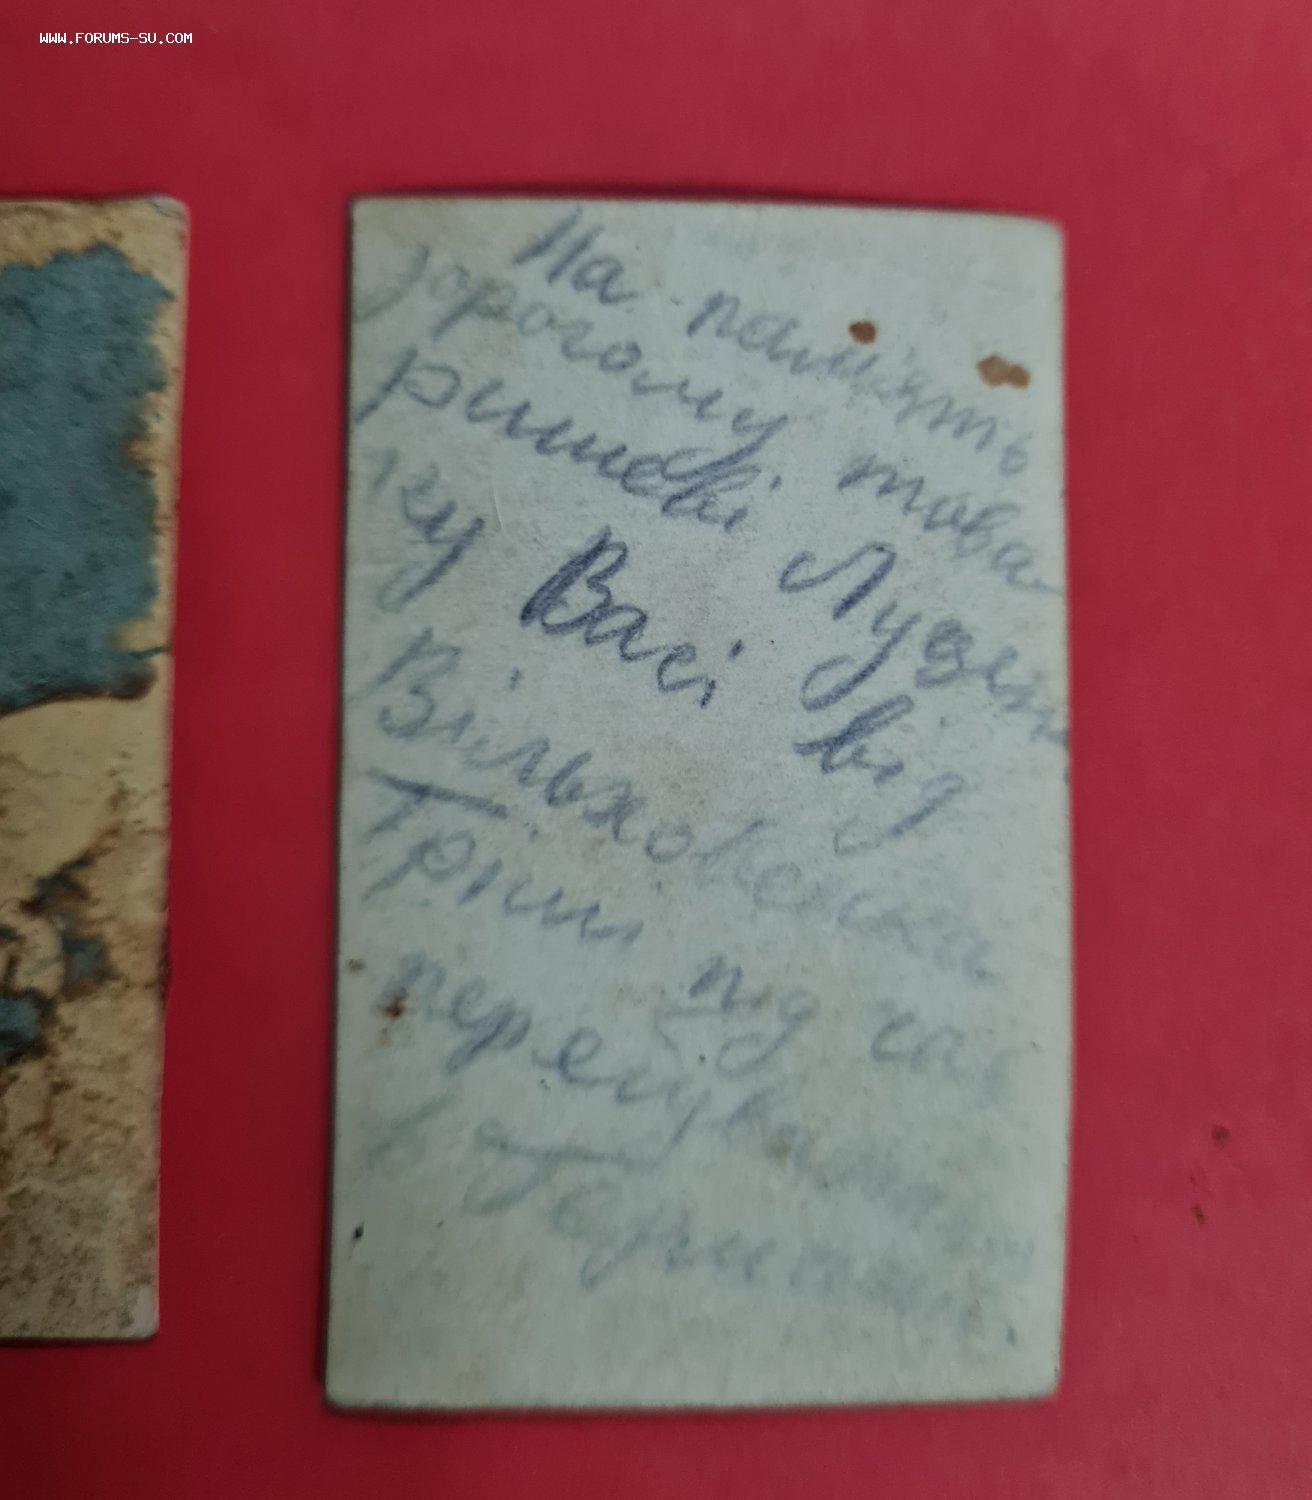 WWW.FORUMS-SU.COM
На пам'ять
дорогому това-
ришеві Лузен
ку Васі від
Вільховенка
Гріші під час
перебування
в Герма